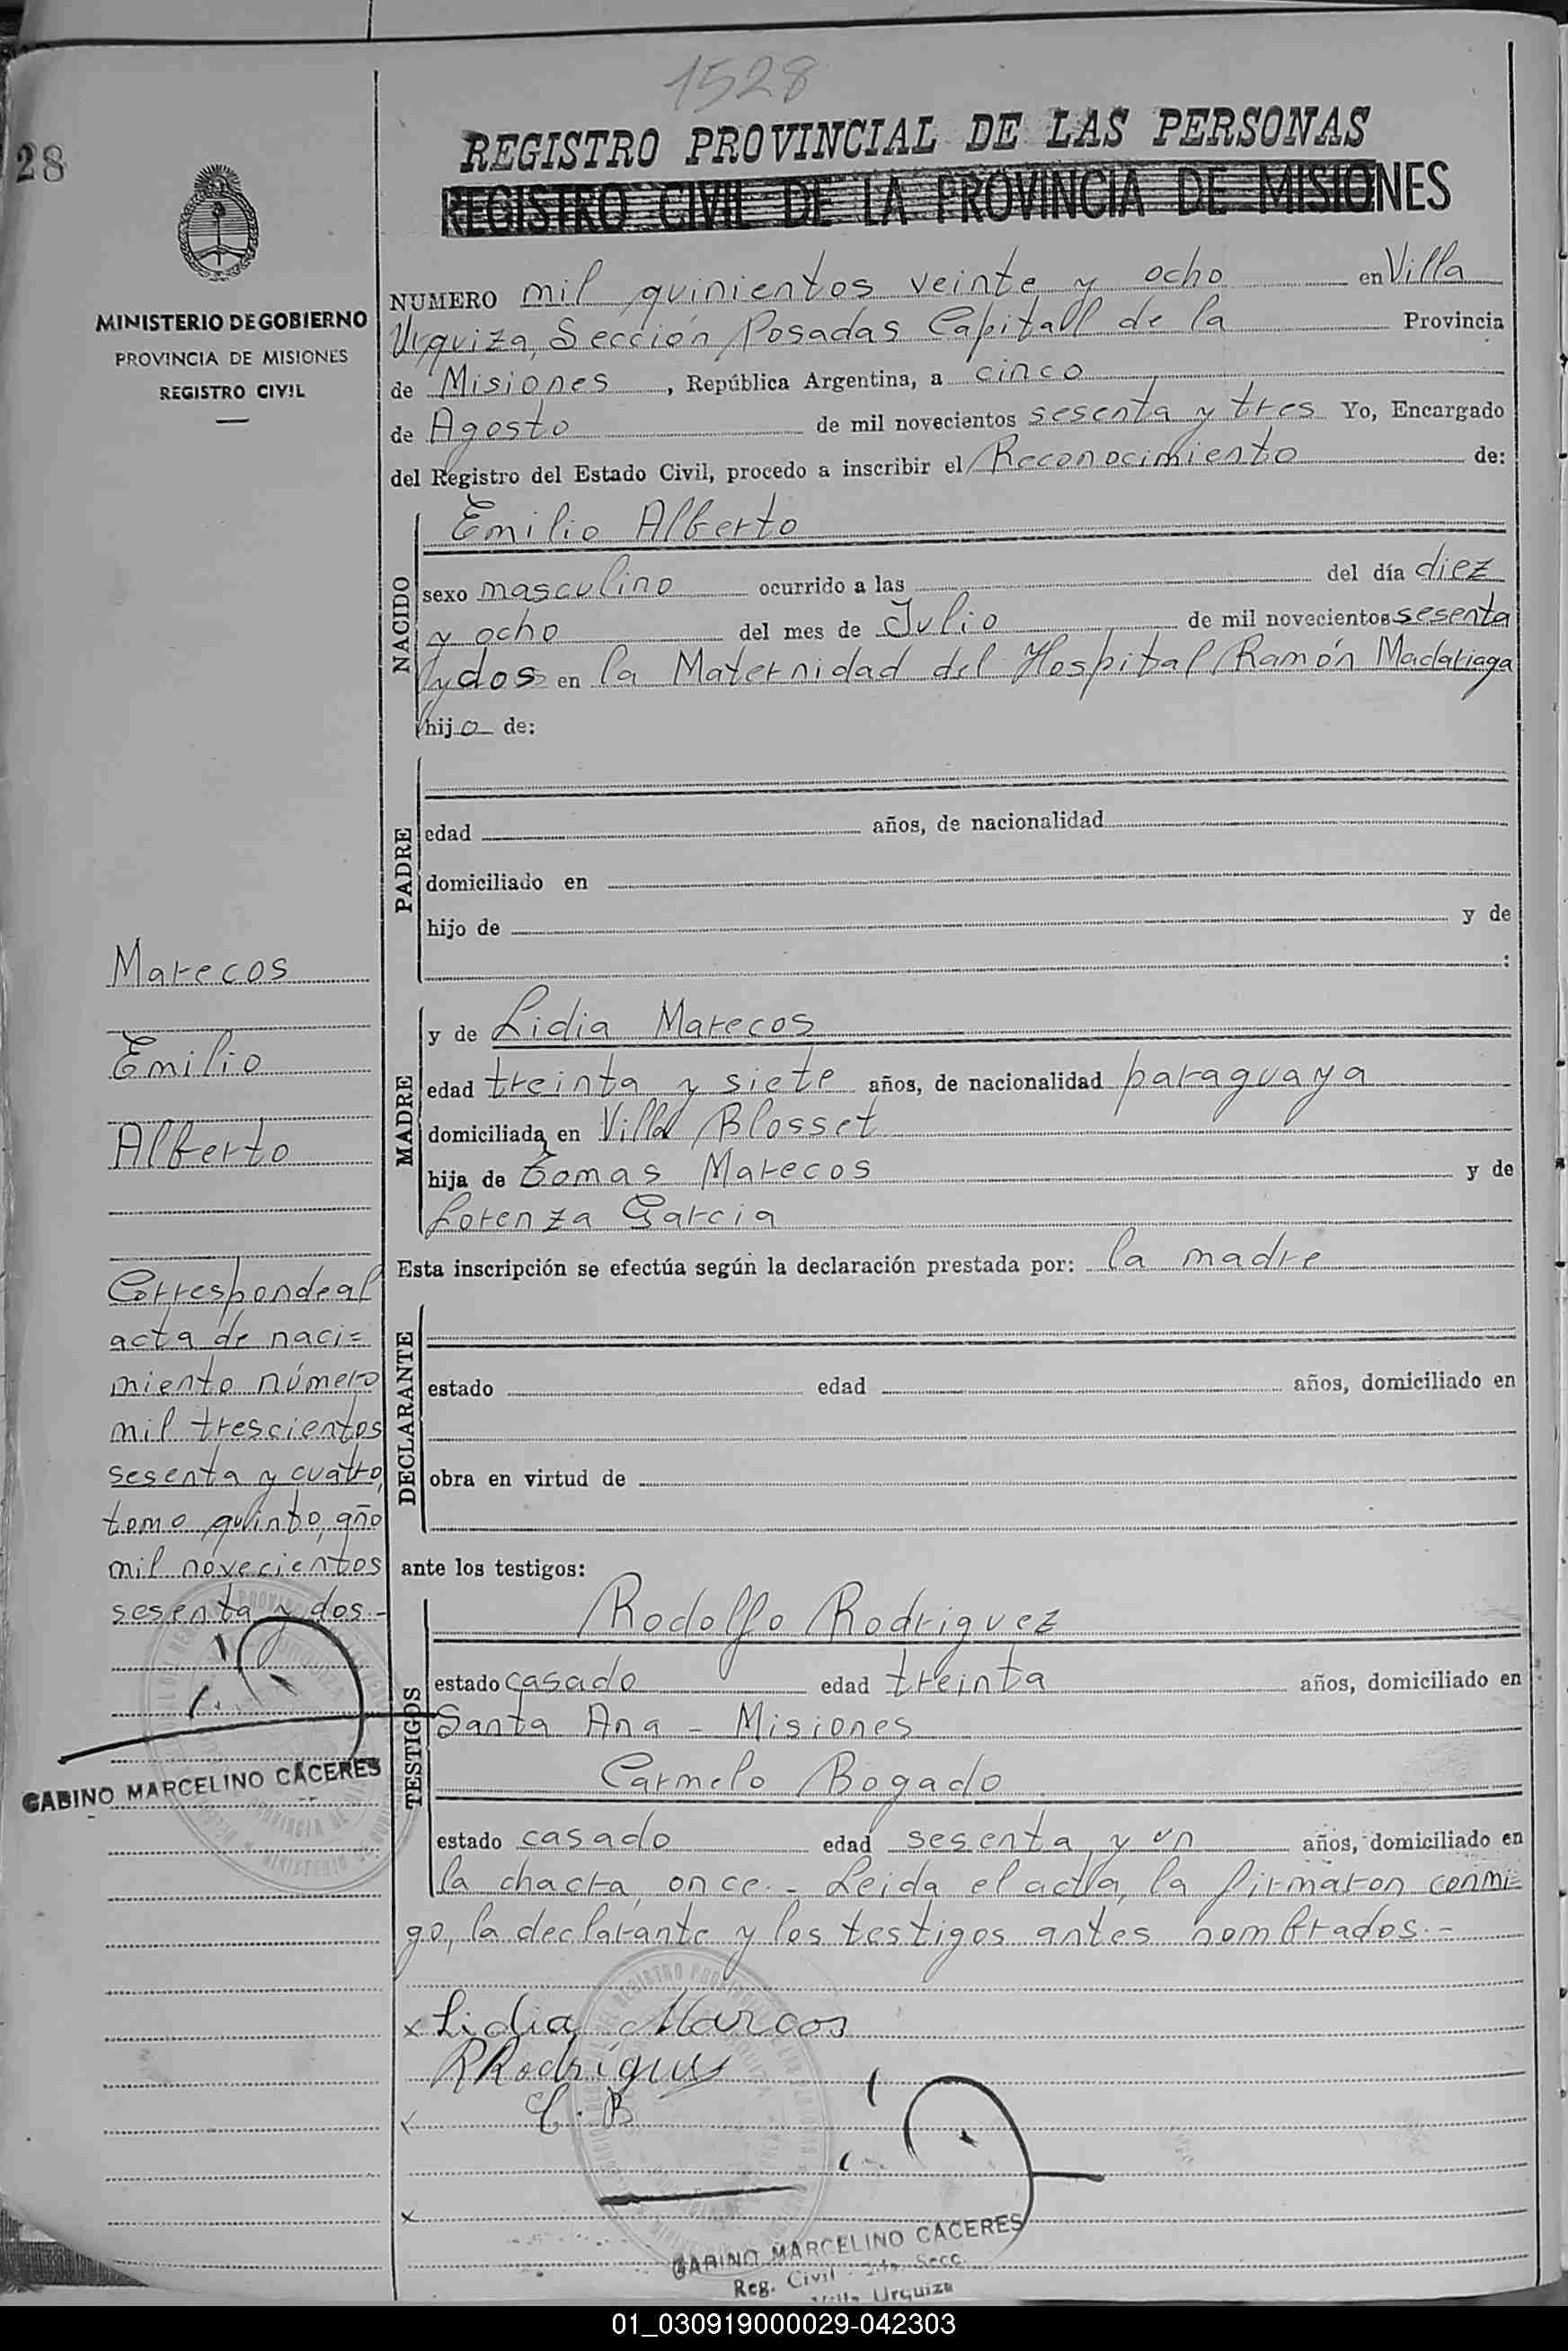 1528
28
REGISTRO PROVINCIAL DE LAS PERSONAS
REGISTRO CIVIL DE LA PROVINCIA DE MISIONES
MINISTERIO DE GOBIERNO
PROVINCIA DE MISIONES
REGISTRO CIVIL
NUMERO mil quinientos veinte y ocho en Villa
Urquiza, Sección Posadas Capitall de la Provincia
de Misiones, República Argentina, a cinco
de Agosto de mil novecientos sesenta y tres Yo, Encargado
del Registro del Estado Civil, procedo a inscribir el Reconocimiento de:
NACIDO
Emilio Alberto
sexo masculino ocurrido a las del día diez
y ocho del mes de Julio de mil novecientos sesenta
y dos en la Maternidad del Hospital Ramón Madariaga
hijo de:
PADRE
edad años, de nacionalidad
domiciliado en
hijo de y de
:
MADRE
y de Lidia Marecos
edad treinta y siete años, de nacionalidad paraguaya
domiciliada en Villa Blosset
hija de Tomas Marecos y de
Lorenza Garcia
Esta inscripción se efectúa según la declaración prestada por: la madre
DECLARANTE
estado edad años, domiciliado en
obra en virtud de
ante los testigos:
TESTIGOS
Rodolfo Rodriguez
estado casado edad treinta años, domiciliado en
Santa Ana - Misiones
Carmelo Bogado
estado casado edad sesenta y un años, domiciliado en
la chacra once.- Leida el acta, la firmaron conmi=
go, la declarante y los testigos antes nombrados.-
x Lidia Marcos
RRodrígues
C. B
x
GABINO MARCELINO CACERES
Reg. Civil Secc.
Villa Urquiza
Marecos
Emilio
Alberto
Corresponde al
acta de naci=
miento número
mil trescientos
sesenta y cuatro,
tomo quinto, año
mil novecientos
sesenta y dos.-
GABINO MARCELINO CACERES
01_030919000029-042303